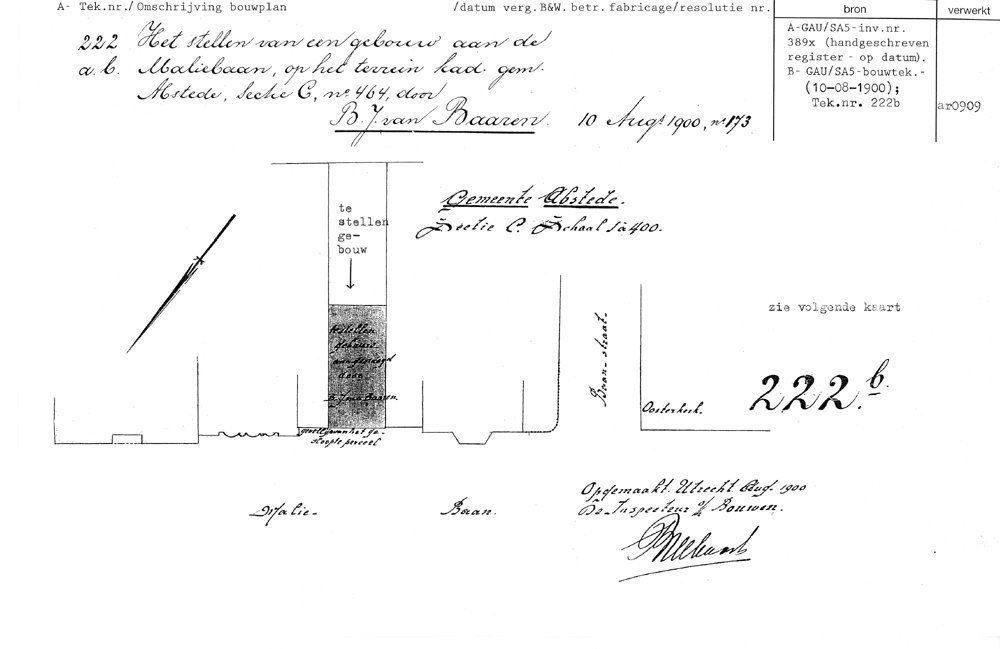 A- Tek.nr./ Omschrijving bouwplan /datum verg. B&W. betr. fabricage/resolutie nr. bron verwerkt
222 Het stellen van een gebouw aan de
a. b. Maliebaan, op het terrein kad. gem.
Abstede, Sectie C, no 464, door
B. J. van Baaren. 10 Augt 1900, no 173
A-GAU/SA5-inv.nr.
389x (handgeschreven
register - op datum).
B- GAU/SA5-bouwtek.-
(10-08-1900);
Tek.nr. 222b
ar0909
Gemeente Abstede.
Sectie C. Schaal 1 à 400.
te
stellen
ge-
bouw
zie volgende kaart
te stellen
gebouw
aangevraagd
door
B. J. van Baaren.
gevel van het ge-
sloopte perceel
Baan-straat-
Oosterkerk.
222.b.
Malie-
Baan.
Opgemaakt. Utrecht Aug. 1900
De Inspecteur o/d Bouwen.